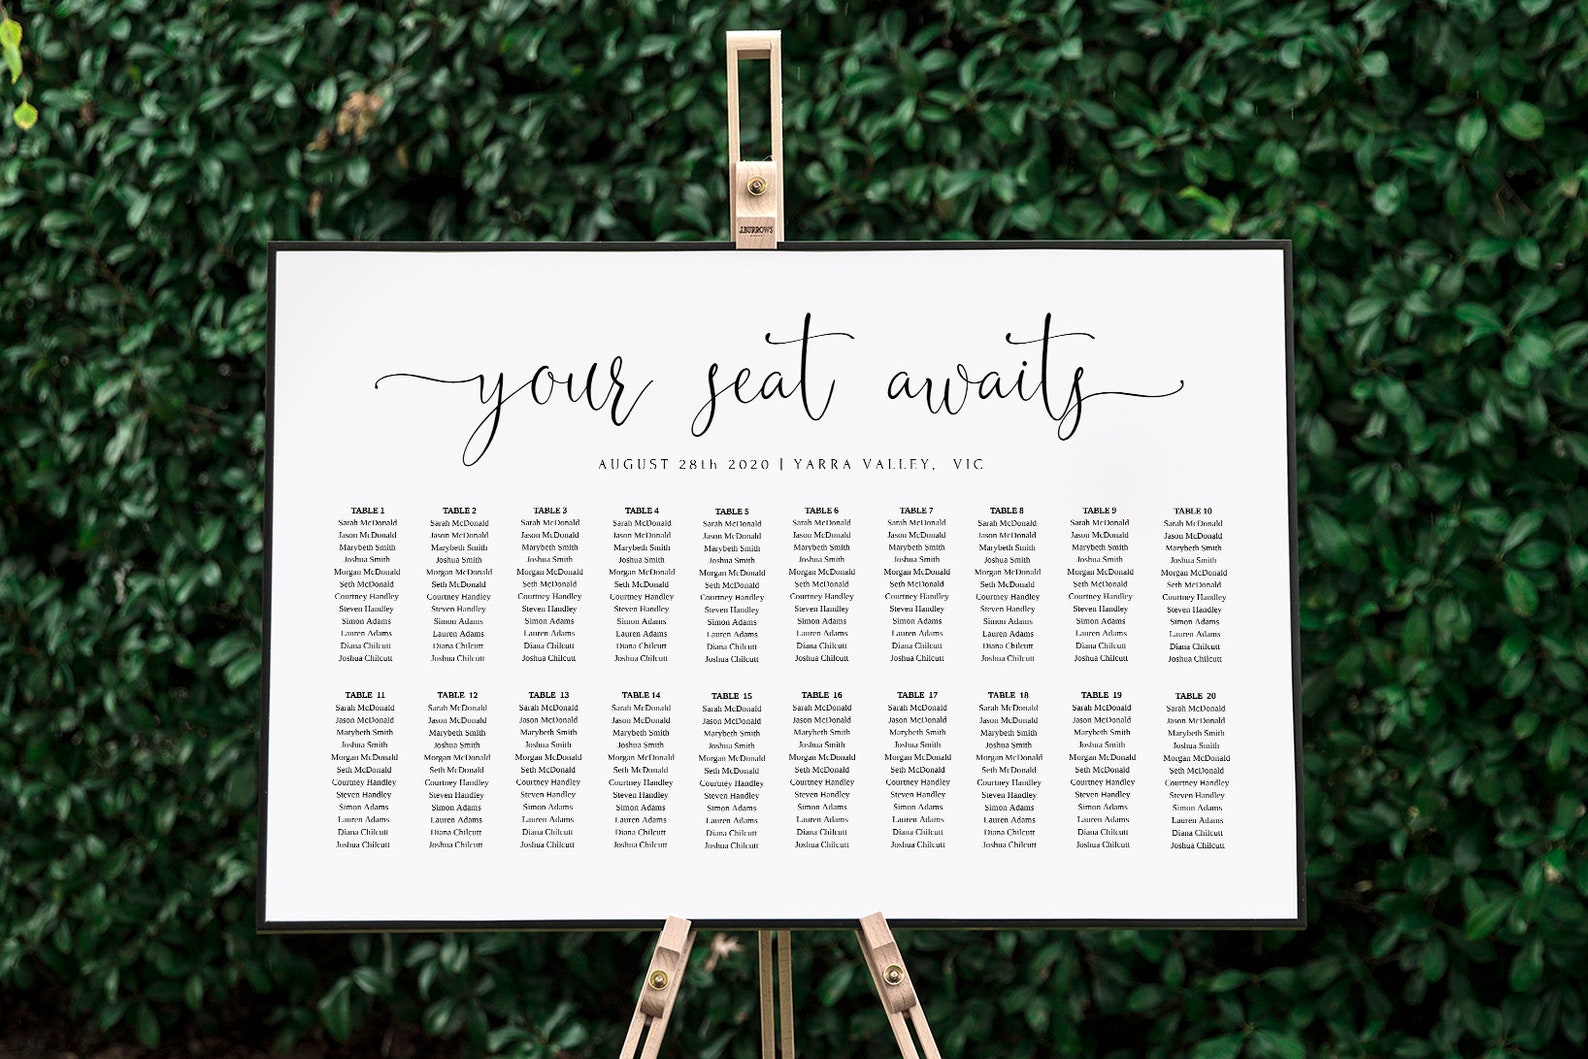 J.BURROWS
your seat awaits
AUGUST 28th 2020 | YARRA VALLEY, VIC
TABLE 1
Sarah McDonald
Jason McDonald
Marybeth Smith
Joshua Smith
Morgan McDonald
Seth McDonald
Courtney Handley
Steven Handley
Simon Adams
Lauren Adams
Diana Chilcutt
Joshua Chilcutt
TABLE 2
Sarah McDonald
Jason McDonald
Marybeth Smith
Joshua Smith
Morgan McDonald
Seth McDonald
Courtney Handley
Steven Handley
Simon Adams
Lauren Adams
Diana Chilcutt
Joshua Chilcutt
TABLE 3
Sarah McDonald
Jason McDonald
Marybeth Smith
Joshua Smith
Morgan McDonald
Seth McDonald
Courtney Handley
Steven Handley
Simon Adams
Lauren Adams
Diana Chilcutt
Joshua Chilcutt
TABLE 4
Sarah McDonald
Jason McDonald
Marybeth Smith
Joshua Smith
Morgan McDonald
Seth McDonald
Courtney Handley
Steven Handley
Simon Adams
Lauren Adams
Diana Chilcutt
Joshua Chilcutt
TABLE 5
Sarah McDonald
Jason McDonald
Marybeth Smith
Joshua Smith
Morgan McDonald
Seth McDonald
Courtney Handley
Steven Handley
Simon Adams
Lauren Adams
Diana Chilcutt
Joshua Chilcutt
TABLE 6
Sarah McDonald
Jason McDonald
Marybeth Smith
Joshua Smith
Morgan McDonald
Seth McDonald
Courtney Handley
Steven Handley
Simon Adams
Lauren Adams
Diana Chilcutt
Joshua Chilcutt
TABLE 7
Sarah McDonald
Jason McDonald
Marybeth Smith
Joshua Smith
Morgan McDonald
Seth McDonald
Courtney Handley
Steven Handley
Simon Adams
Lauren Adams
Diana Chilcutt
Joshua Chilcutt
TABLE 8
Sarah McDonald
Jason McDonald
Marybeth Smith
Joshua Smith
Morgan McDonald
Seth McDonald
Courtney Handley
Steven Handley
Simon Adams
Lauren Adams
Diana Chilcutt
Joshua Chilcutt
TABLE 9
Sarah McDonald
Jason McDonald
Marybeth Smith
Joshua Smith
Morgan McDonald
Seth McDonald
Courtney Handley
Steven Handley
Simon Adams
Lauren Adams
Diana Chilcutt
Joshua Chilcutt
TABLE 10
Sarah McDonald
Jason McDonald
Marybeth Smith
Joshua Smith
Morgan McDonald
Seth McDonald
Courtney Handley
Steven Handley
Simon Adams
Lauren Adams
Diana Chilcutt
Joshua Chilcutt
TABLE 11
Sarah McDonald
Jason McDonald
Marybeth Smith
Joshua Smith
Morgan McDonald
Seth McDonald
Courtney Handley
Steven Handley
Simon Adams
Lauren Adams
Diana Chilcutt
Joshua Chilcutt
TABLE 12
Sarah McDonald
Jason McDonald
Marybeth Smith
Joshua Smith
Morgan McDonald
Seth McDonald
Courtney Handley
Steven Handley
Simon Adams
Lauren Adams
Diana Chilcutt
Joshua Chilcutt
TABLE 13
Sarah McDonald
Jason McDonald
Marybeth Smith
Joshua Smith
Morgan McDonald
Seth McDonald
Courtney Handley
Steven Handley
Simon Adams
Lauren Adams
Diana Chilcutt
Joshua Chilcutt
TABLE 14
Sarah McDonald
Jason McDonald
Marybeth Smith
Joshua Smith
Morgan McDonald
Seth McDonald
Courtney Handley
Steven Handley
Simon Adams
Lauren Adams
Diana Chilcutt
Joshua Chilcutt
TABLE 15
Sarah McDonald
Jason McDonald
Marybeth Smith
Joshua Smith
Morgan McDonald
Seth McDonald
Courtney Handley
Steven Handley
Simon Adams
Lauren Adams
Diana Chilcutt
Joshua Chilcutt
TABLE 16
Sarah McDonald
Jason McDonald
Marybeth Smith
Joshua Smith
Morgan McDonald
Seth McDonald
Courtney Handley
Steven Handley
Simon Adams
Lauren Adams
Diana Chilcutt
Joshua Chilcutt
TABLE 17
Sarah McDonald
Jason McDonald
Marybeth Smith
Joshua Smith
Morgan McDonald
Seth McDonald
Courtney Handley
Steven Handley
Simon Adams
Lauren Adams
Diana Chilcutt
Joshua Chilcutt
TABLE 18
Sarah McDonald
Jason McDonald
Marybeth Smith
Joshua Smith
Morgan McDonald
Seth McDonald
Courtney Handley
Steven Handley
Simon Adams
Lauren Adams
Diana Chilcutt
Joshua Chilcutt
TABLE 19
Sarah McDonald
Jason McDonald
Marybeth Smith
Joshua Smith
Morgan McDonald
Seth McDonald
Courtney Handley
Steven Handley
Simon Adams
Lauren Adams
Diana Chilcutt
Joshua Chilcutt
TABLE 20
Sarah McDonald
Jason McDonald
Marybeth Smith
Joshua Smith
Morgan McDonald
Seth McDonald
Courtney Handley
Steven Handley
Simon Adams
Lauren Adams
Diana Chilcutt
Joshua Chilcutt